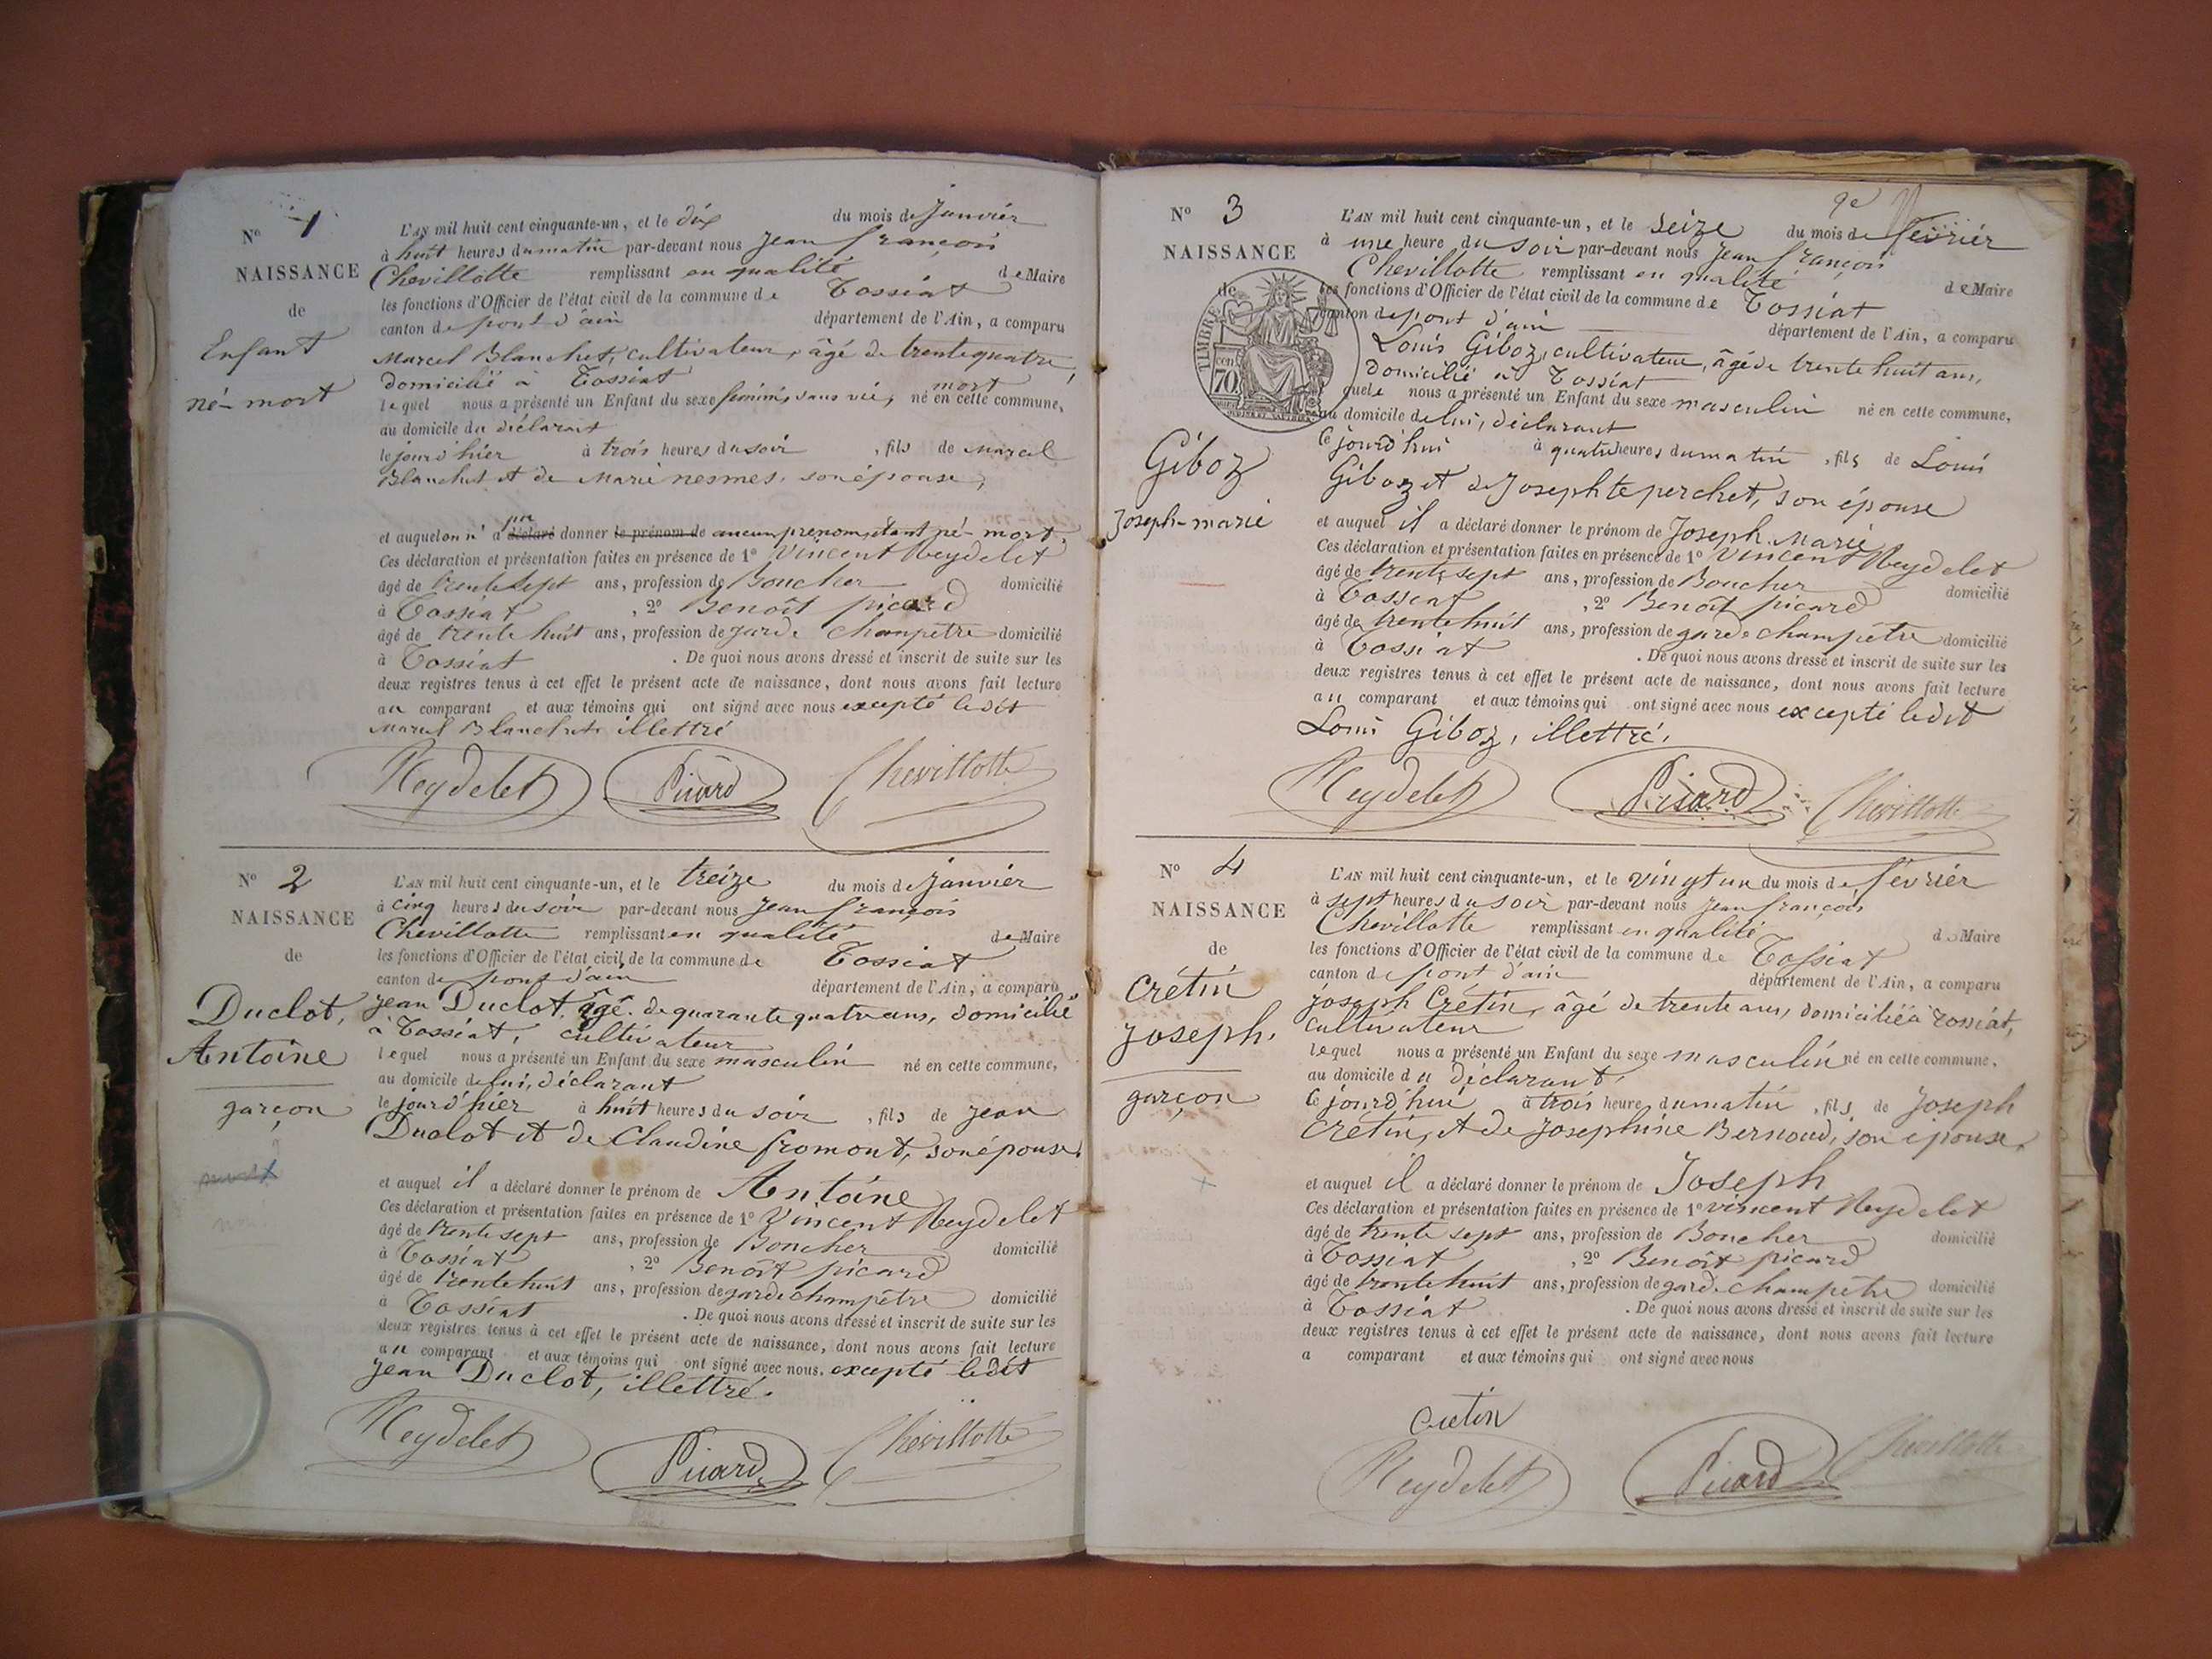 N° 1
NAISSANCE
de
Enfant
né-mort
L'AN mil huit cent cinquante-un, et le dix du mois de Janvier
à huit heures du matin par-devant nous Jean françois
Chevillotte remplissant en qualité de Maire
les fonctions d'Officier de l'état civil de la commune de Tossiat
canton de pont d'ain département de l'Ain, a comparu
Marcel Blanchet, cultivateur, âgé de trente quatre,
domicilié à Tossiat
lequel nous a présenté un Enfant du sexe féminin, sans vie, né mort en cette commune,
au domicile du déclarant
le jourd'hier à trois heures du soir, fils de Marcel
Blanchet et de Marie nesmes, son épouse,
et auquel on n'a pu déclaré donner le prénom de aucun prenom, étant né-mort.
Ces déclaration et présentation faites en présence de 1° Vincent Neydelet
âgé de trente sept ans, profession de Boucher domicilié
à Tossiat, 2° Benoît picard
âgé de trente huit ans, profession de garde champêtre domicilié
à Tossiat. De quoi nous avons dressé et inscrit de suite sur les
deux registres tenus à cet effet le présent acte de naissance, dont nous avons fait lecture
au comparant et aux témoins qui ont signé avec nous excepté ledit
Marcel Blanchet, illettré
Neydelet Picard Chevillotte
N° 2
NAISSANCE
de
Duclot,
Antoine
garçon
L'AN mil huit cent cinquante-un, et le treize du mois de Janvier
à cinq heures du soir par-devant nous Jean françois
Chevillotte remplissant en qualité de Maire
les fonctions d'Officier de l'état civil de la commune de Tossiat
canton de pont d'ain département de l'Ain, a comparu
Jean Duclot, âgé de quarante quatre ans, domicilié
à Tossiat, cultivateur
lequel nous a présenté un Enfant du sexe masculin né en cette commune,
au domicile de lui, déclarant
le jourd'hier à huit heures du soir, fils de Jean
Duclot et de Claudine fromont, son épouse,
et auquel il a déclaré donner le prénom de Antoine
Ces déclaration et présentation faites en présence de 1° Vincent Neydelet
âgé de trente sept ans, profession de Boucher domicilié
à Tossiat, 2° Benoît picard
âgé de trente huit ans, profession de garde champêtre domicilié
à Tossiat. De quoi nous avons dressé et inscrit de suite sur les
deux registres tenus à cet effet le présent acte de naissance, dont nous avons fait lecture
au comparant et aux témoins qui ont signé avec nous, excepté ledit
Jean Duclot, illettré.
Neydelet Picard Chevillotte
N° 3
NAISSANCE
de
TIMBRE
70
Giboz
Joseph-marie
2e
L'AN mil huit cent cinquante-un, et le seize du mois de février
à une heure du soir par-devant nous Jean françois
Chevillotte remplissant en qualité de Maire
les fonctions d'Officier de l'état civil de la commune de Tossiat
canton de pont d'ain département de l'Ain, a comparu
Louis Giboz, cultivateur, âgé de trente huit ans,
domicilié à Tossiat
quel nous a présenté un Enfant du sexe masculin né en cette commune,
au domicile de lui, déclarant
ce jourd'hui à quatre heures du matin, fils de Louis
Giboz et de Josephte perchet, son épouse
et auquel il a déclaré donner le prénom de Joseph-Marie
Ces déclaration et présentation faites en présence de 1° Vincent Neydelet
âgé de trente sept ans, profession de Boucher domicilié
à Tossiat, 2° Benoît picard
âgé de trente huit ans, profession de garde champêtre domicilié
à Tossiat. De quoi nous avons dressé et inscrit de suite sur les
deux registres tenus à cet effet le présent acte de naissance, dont nous avons fait lecture
au comparant et aux témoins qui ont signé avec nous excepté ledit
Louis Giboz, illettré.
Neydelet Picard Chevillotte
N° 4
NAISSANCE
de
Crétin
Joseph.
garçon
L'AN mil huit cent cinquante-un, et le vingt un du mois de février
à sept heures du soir par-devant nous Jean françois
Chevillotte remplissant en qualité de Maire
les fonctions d'Officier de l'état civil de la commune de Tossiat
canton de pont d'ain département de l'Ain, a comparu
Joseph Crétin, âgé de trente ans, domicilié à Tossiat,
cultivateur
lequel nous a présenté un Enfant du sexe masculin né en cette commune,
au domicile du déclarant,
ce jourd'hui à trois heure du matin, fils de Joseph
Crétin, et de Josephine Bernoud, son épouse,
et auquel il a déclaré donner le prénom de Joseph
Ces déclaration et présentation faites en présence de 1° Vincent Neydelet
âgé de trente sept ans, profession de Boucher domicilié
à Tossiat, 2° Benoît picard
âgé de trente huit ans, profession de garde champêtre domicilié
à Tossiat. De quoi nous avons dressé et inscrit de suite sur les
deux registres tenus à cet effet le présent acte de naissance, dont nous avons fait lecture
a comparant et aux témoins qui ont signé avec nous
Cretin
Neydelet Picard Chevillotte